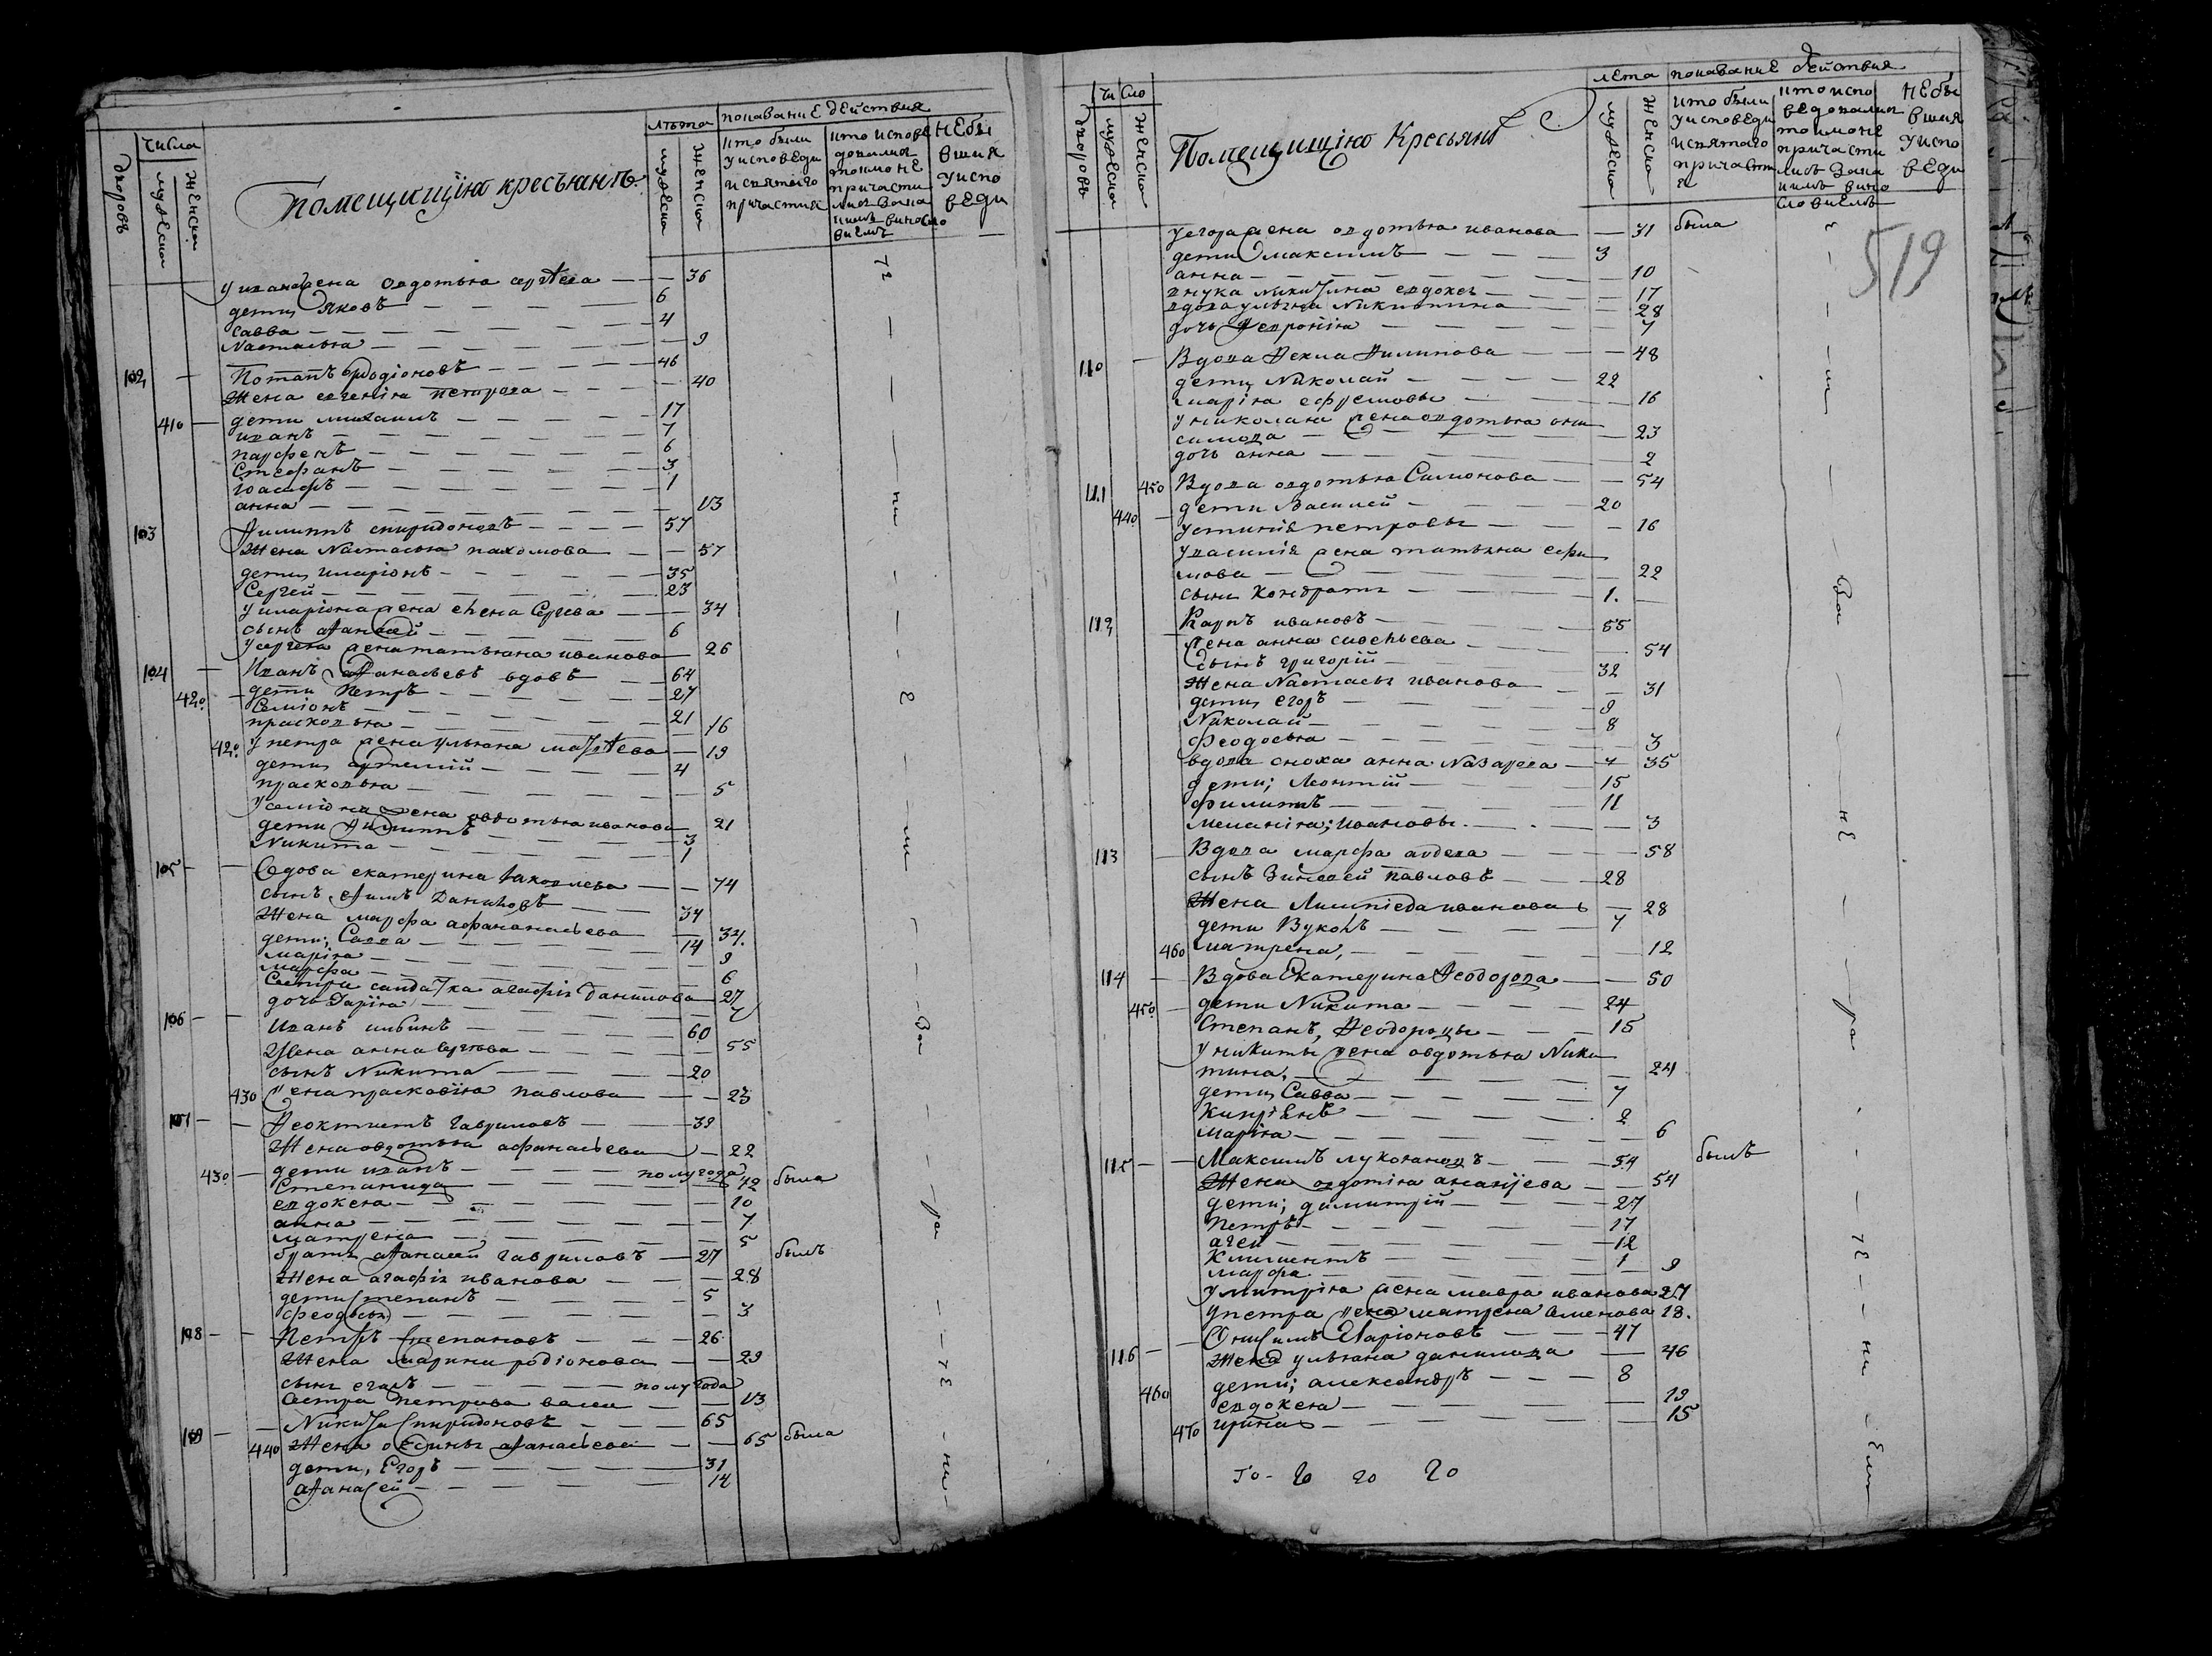 числа
дворовъ
мужеска
женска
Помещищiхо кресьянъ
лѣта
мужеска
женска
показание действия
кто были
у исповеди
и святаго
причастия
кто испове
довался
токмо не
причасти
лися
небы
вшия
у испо
веди
у ивана жена овдотья сергѣева — 36
дети Яковъ — 6
савва — 4
Настасья — 9
102 Потапъ родiоновъ — 46
Жена евгенiя петрова — 40
410 дети михаилъ — 17
иванъ — 7
парфенъ — 6
Стефанъ — 3
iоасифъ — 1
анна — 13
103 Филиппъ спиридоновъ — 57
Жена Настасья пахомова — 57
дети иларiонъ — 35
Сергей — 23
у иларiона жена елена Сергева — 34
сынъ афанасей — 6
у сергея жена татьяна иванова 26
104 Иванъ афанасьевъ вдовъ — 64
420 дети Петръ — 27
Семiонъ — 21
прасковья — 16
420 у петра жена ульяна матвѣева — 19
дети артемiй — 4
прасковья — 5
у семiона жена овдотья иванова 21
дети филиппъ — 3
Никита — 1
105 вдова екатерина яковлева — 74
сынъ ефимъ Даниловъ — 34
Жена марфа афанасьева — 34
дети; Савва — 14
марiя — 9
марфа — 6
Сестра салдатка агафiя данилова 27
дочь Дарiя — 7
106 Иванъ ильинъ — 60
Жена анна сергѣева — 55
сынъ Никита — 20
430 жена прасковiя павлова — 23
107 Феоктистъ гавриловъ — 39
Жена овдотья афанасьева — 22
430 дети иванъ — полугода
Степанида — 12 была
евдокея — 10
анна — 7
матрена — 5
братъ афанасей гавриловъ — 27 былъ
Жена агафiя иванова — 28
дети степанъ — 5
феодосья — 3
108 Петръ степановъ — 26
Жена Марина родiонова — 29
сынъ егоръ — полугода
Сестра петрова васса — 13
109 Никита Спиридоновъ — 65
440 Жена оксинья афанасьева — 65 была
дети, Егоръ — 31
афанасей — 14
число
дворовъ
мужеска
женска
Помещищiхо Кресьянъ
лета
мужеска
женска
показание действия
кто были
у исповеди
и святаго
причастi
я
кто испо
ведовалися
токмо не
причасти
лись
небы
вшия
у испо
веди
519
у егора жена овдотья иванова — 31 была
дети максимъ — 3
анна — 10
внука никитина евдокея — 17
вдова ульяна Никитина — 28
дочь Февронiя — 7
110 Вдова Фекла Филипова — 48
дети Николай — 22
марiя ефремовы — 16
у николая жена овдотья они
симова — 23
дочь анна — 2
111 450 Вдова овдотья Симонова — 54
440 дети Василей — 20
устинiя петровы — 16
у василiя жена татьяна ефи
мова — 22
сынъ Кондратъ — 1.
112 Карпъ ивановъ — 55
жена анна савельева — 54
сынъ григорiй — 32
Жена Настасья иванова — 31
дети егоръ — 9
Николай — 8
феодосья — 3
вдова сноха анна Назарева — 35
дети; Леонтiй — 15
филиппъ — 11
меланiя; ивановы. — 3
113 Вдова марфа авдеева — 58
сынъ Зиновей павловъ — 28
Жена Лимпiеда иванова — 28
дети Вуколъ — 7
460 матрена, — 12
114 Вдова Екатерина Феодорова — 50
450 дети Никита — 24
Степанъ, Феодоровы — 15
у никиты жена овдотья Ники
тина, — 24
дети Савва — 7
Кипрiянъ — 2
марiя — 6
115 Максимъ лукояновъ — 54 былъ
Жена овдотiя ананiева — 54
дети; димитрiй — 27
Петръ — 17
агей — 12
Климентъ — 1
марфа — 9
у митрiя жена мавра иванова 27
у петра жена матрена Семенова 18.
116 Онисимъ Иларiоновъ — 47
Жена ульяна данилова — 46
460 дети; александръ — 8
евдокея — 19
470 ирина — 15
го- го го го